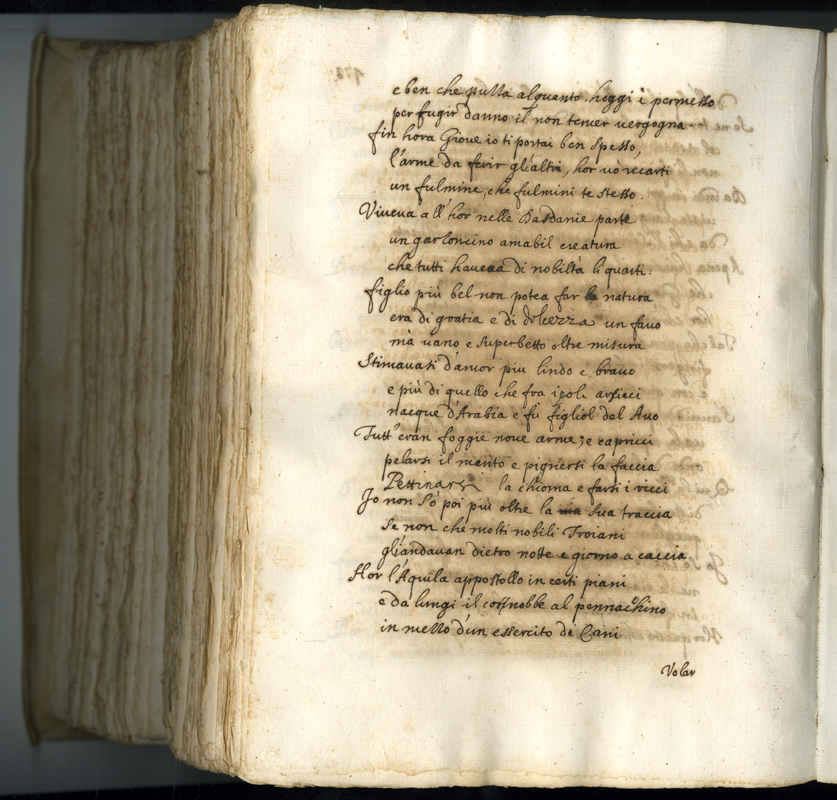 e ben che pulla alquanto, hoggi i permesso
per fugir danno il non temer vergogna
fin hora Gioue io ti portai ben spesso,
l'arme da ferir gl'altri, hor uò recarti
un fulmine, che fulmini te stesso.
Viueua all'hor nelle Dardanie parte
un garzoncino amabil creatura
che tutti haueua di nobiltà li quarti:
figlio più bel non potea far la natura
era di gratia e di dolcezza un fauo
mà uano e superbetto oltre misura
Stimauasi d'amor piu lindo e brauo
e più di quello che fra i poli arsicci
nacque d'Arabia e fù figliol del Auo
Tutt'eran foggie noue arme, e capricci
pelarsi il manto e pignersi la faccia
Pettinarsi la chioma e farsi i ricci
Io non sò poi più oltre la uia sua traccia
se non che molti nobili Troiani
gl'andauan dietro notte e giorno a caccia
Hor l'Aquila appostollo in certi piani
e da lungi il connobbe al pennachino
in mezzo d'un essercito de Cani
Volar